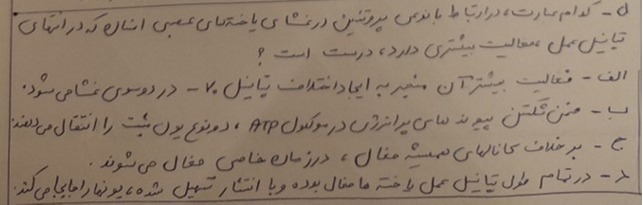 ۵- کدام عبارت، در ارتباط با نوعی پروتئین در غشای یاخته‌های عصبی انسان که در انتهای
پتانسیل عمل، فعالیت بیشتری دارد، درست است؟
الف- فعالیت بیشتر آن منجر به ایجاد اختلاف پتانسیل ۷۰- در دو سوی غشا می‌شود.
ب- ضمن شکستن پیوندهای پرانرژی در مولکول ATP، دو نوع یون مثبت را انتقال می‌دهند.
ج- برخلاف کانالهای همیشه فعال، در زمان خاصی فعال می‌شوند.
د- در تمام طول پتانسیل عمل یاخته‌ها فعال بوده و با انتشار تسهیل شده، یونها را جابجا می‌کند.